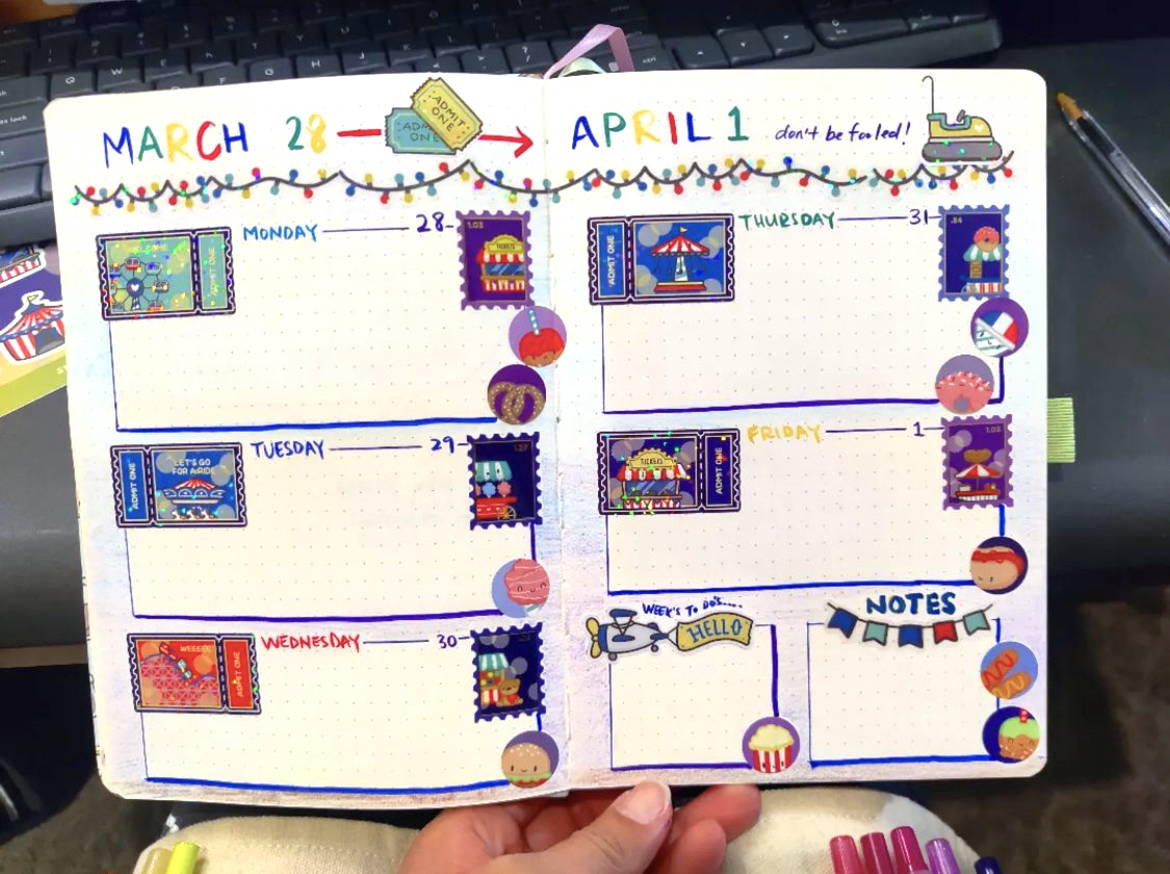 MARCH 28
ADMIT ONE
ADMIT ONE
APRIL 1
don't be fooled!
MONDAY
28
WELCOME
ADMIT ONE
1.03
TICKETS
TUESDAY
29
ADMIT ONE
LET'S GO
FOR A RIDE
1.27
WEDNESDAY
30
WEEEEE
ADMIT ONE
THURSDAY
31
ADMIT ONE
.84
FRIDAY
1
TICKETS
ADMIT ONE
1.03
WEEK'S TO DO'S....
HELLO
NOTES
Q
W
E
R
T